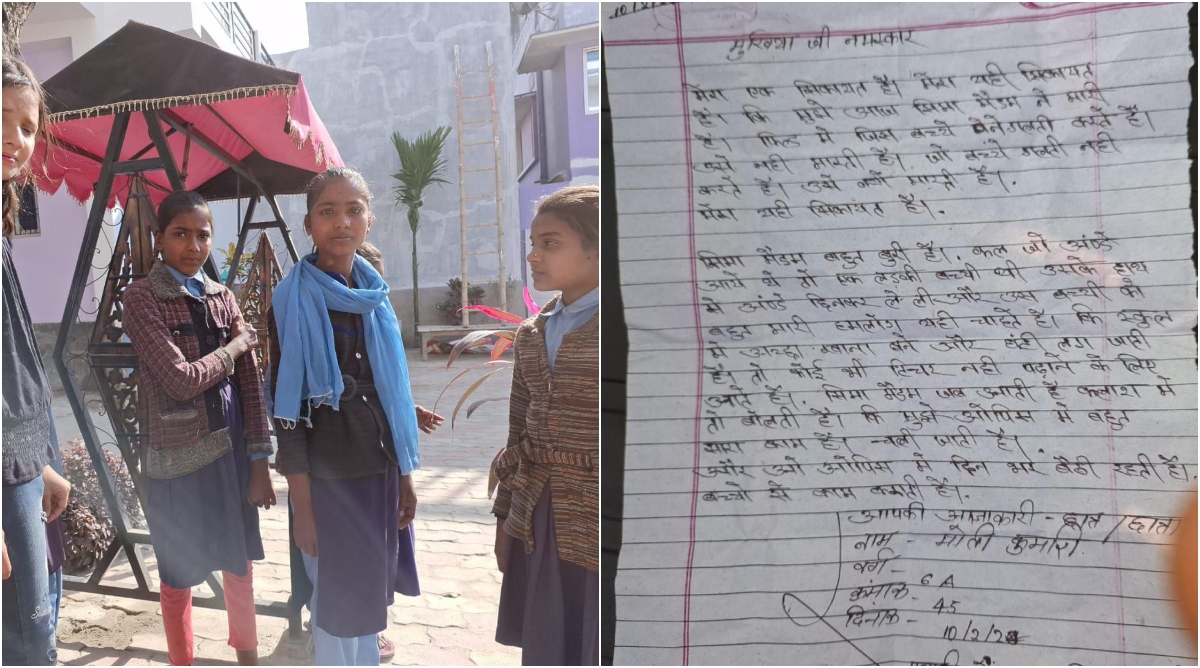 10/2/2
मुखिया जी नमस्कार
मेरा एक सिकायत है। मेरा यही सिकायत
है। कि मुझे आज सिमा मैडम ने मारी
है। फिल्ड में जिस बच्चे गलती करते है।
उसे नही मारती है। जो बच्चे गलती नही
करते है। उसे क्यों मारती है।
मेरा यही सिकायत है।
सिमा मैडम बहुत बुरी है। कल जो अंडे
आये थे तो एक लड़की बच्ची थी उसके हाथ
में अंडे छिनकर ले ली और उस बच्ची को
बहुत मारी हमलोग यही चाहते है। कि स्कुल
में अच्छा खाना बने और घंटी लग जाती
है। तो कोई भी टिचर नही पढ़ाने के लिए
आते है। सिमा मैडम जब आती है क्लाश में
तो बोलती है। कि मुझे ओपिस में बहुत
सारा काम है। चली जाती है।
और ओ ओपिस में दिन भर बैठी रहती है।
बच्चो से काम करती है।
आपकी आज्ञाकारी - छात्र / छात्रा
नाम - कुमारी
वर्ग -
क्रमांक - 6 A
दिनांक - 45
10/2/2